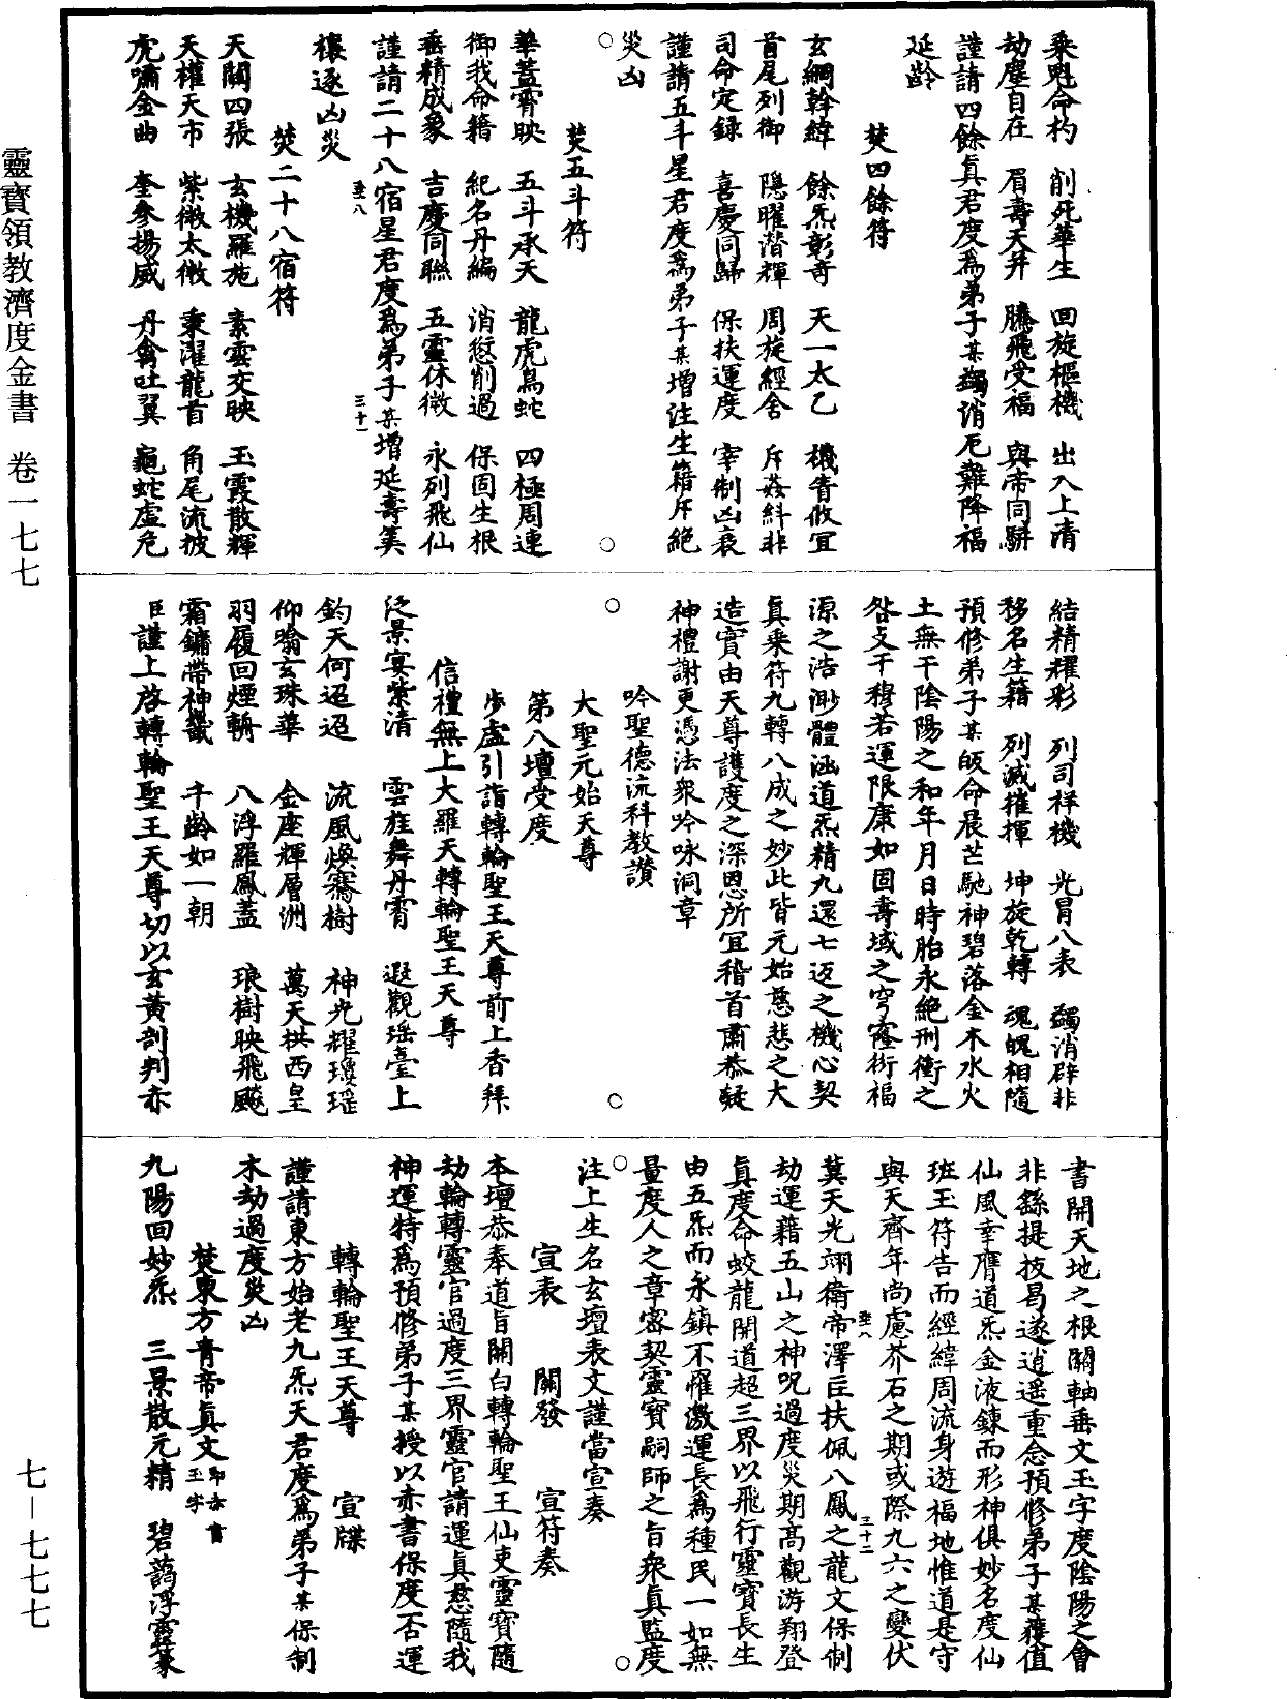 乘魁命杓　削死華生　回旋樞機　出入上清
劫塵自在　眉壽天并　騰飛受福　與帝同騈
謹請四餘眞君度爲弟子某蠲消厄難降福
延齡
焚四餘符
玄綱幹緯　餘炁彰奇　天一太乙　機青攸宜
首尾列御　隱曜潜輝　周旋經舍　斥姦糾非
司命定録　喜慶同歸　保扶運度　宰制凶衰
謹請五斗星君度爲弟子某增注生籍斥絶
災凶
焚五斗符
華蓋霄映　五斗承天　龍虎鳥蛇　四極周連
御我命籍　紀名丹編　消愆削過　保固生根
垂精成象　吉慶同聯　五靈休徵　永列飛仙
謹請二十八宿星君度爲弟子某增延壽筭
禳逐凶災
焚二十八宿符
天關四張　玄機羅施　素雲交映　玉霞散輝
天權天市　紫微太微　東濯龍首　角尾流披
虎嘯金曲　奎參揚威　丹禽吐翼　龜蛇虚危
結精耀彩　列司祥機　光冐八表　蠲消辟非
移名生籍　列滅摧揮　坤旋乾轉　魂魄相隨
預修弟子某皈命晨芒馳神碧落金木水火
土無干陰陽之和年月日時胎永絶刑衝之
咎攴干穆若運限康如固壽域之穹窿衍福
源之浩渺體涵道炁精九還七返之機心契
眞乘符九轉八成之妙此皆元始慈悲之大
造實由天尊護度之深恩所冝稽首肅恭凝
神禮謝更憑法衆吟咏洞章
吟聖德流科教讚
大聖元始天尊
第八壇受度
步虚引詣轉輪聖王天尊前上香拜
信禮無上大羅天轉輪聖王天尊
泛景宴紫清　雲旌舞丹霄　遐觀瑶臺上
鈞天何迢迢　流風煥騫樹　神光耀瓊瑶
仰喻玄珠華　金座輝層洲　萬天拱西皇
羽履回煙輧　八浮羅鳳蓋　琅樹映飛飈
霜鏞帶神籤　千齡如一朝
臣謹上啓轉輪聖王天尊切以玄黃剖判赤
書開天地之根關軸垂文玉字度陰陽之會
非繇提拔曷遂逍遥重念預修弟子某獲值
仙風幸膺道炁金液鍊而形神俱妙名度仙
班玉符告而經緯周流身遊福地惟道是守
與天齊年尚慮芥石之期或際九六之變伏
冀天光翊衛帝澤巨扶佩八鳳之龍文保制
劫運藉五山之神呪過度災期高觀游翔登
眞度命蛟龍開道超三界以飛行靈寳長生
由五炁而永鎮不罹激運長爲種民一如無
量度人之章密契靈寳嗣師之旨衆眞監度
注上生名玄壇表文謹當宣奏
宣表　關發　宣符奏
本壇恭奉道旨關白轉輪聖王仙吏靈寳隨
劫輪轉靈官過度三界靈官請運眞慈隨我
神運特爲預修弟子某授以赤書保度否運
轉輪聖王天尊　宣牒
謹請東方始老九炁天君度爲弟子某保制
木劫過度災凶
焚東方青帝眞文即赤書玉字
九陽回妙炁　三景散元精　碧藹浮靈篆
靈寶領教濟度金書　卷一七七
七—七七七